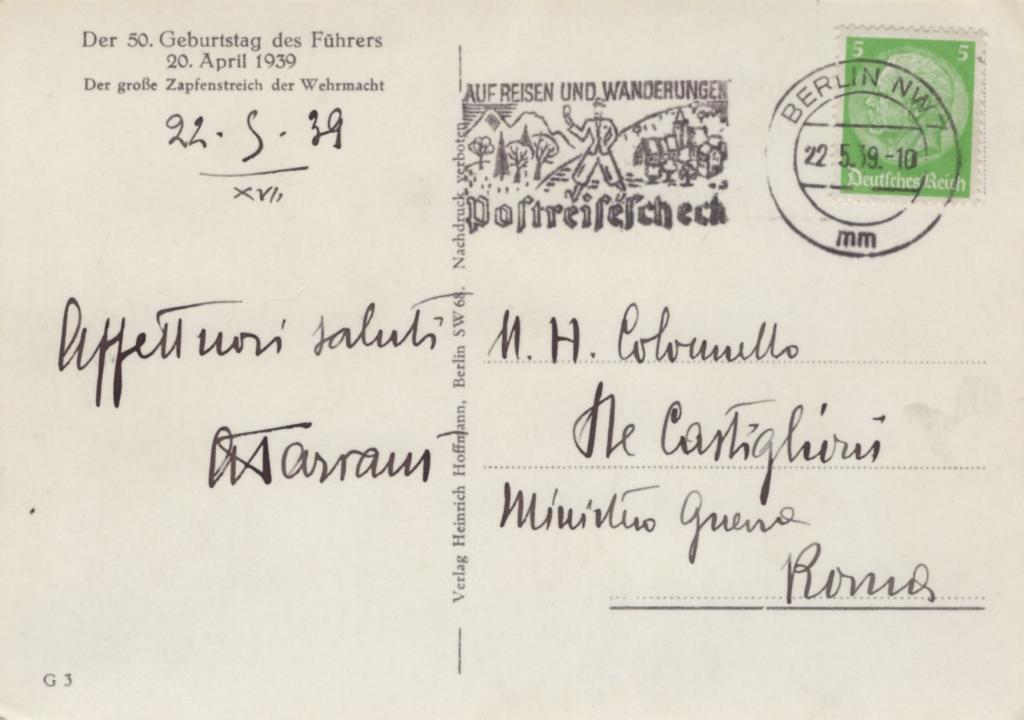 Der 50. Geburtstag des Führers
20. April 1939
Der große Zapfenstreich der Wehrmacht
22 . 5 . 39
XVII
Affettuosi saluti
AUF REISEN UND WANDERUNGEN
Postreisescheck
BERLIN NW 7
22.5.39.-10
mm
5 5
Deutsches Reich
Verlag Heinrich Hoffmann, Berlin SW 68. Nachdruck verboten
N. H. Colonnello
Castiglioni
Ministero Guerra
Roma
G 3